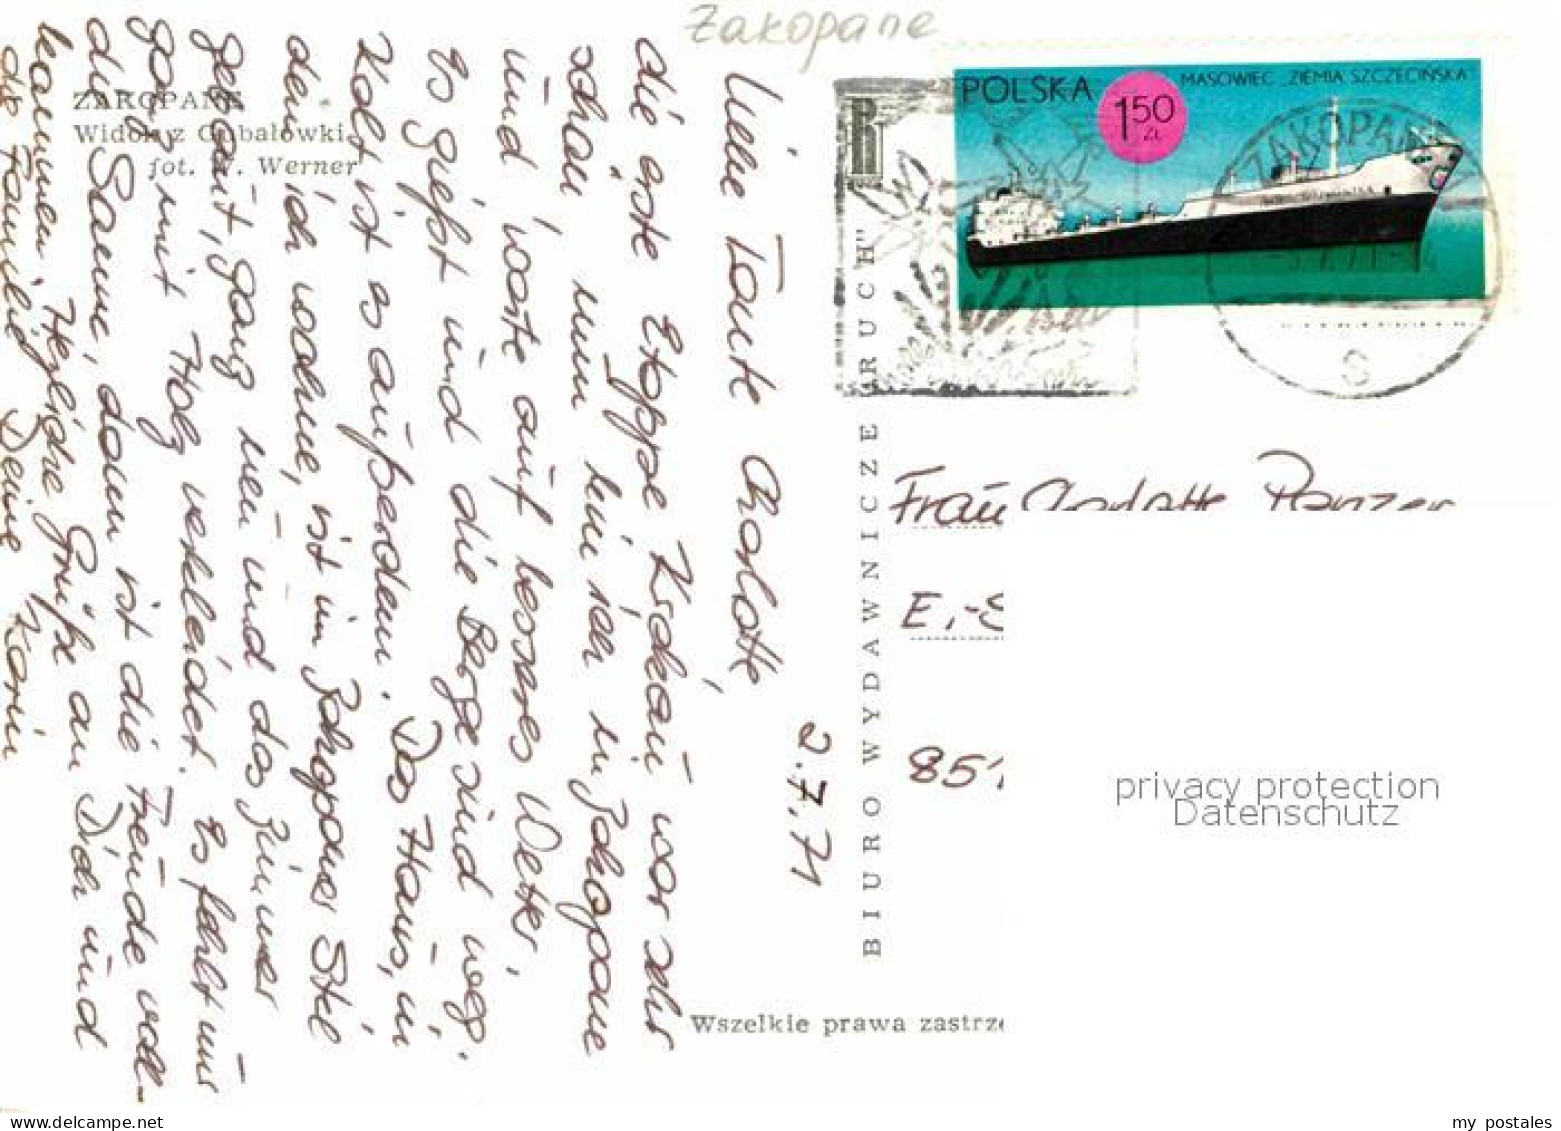 Zakopane
ZAKOPANE
Widok z Gubałówki
fot. W. Werner
POLSKA
1,50
ZŁ
MASOWIEC „ZIEMIA SZCZECIŃSKA"
ZAKOPANE
S
BIURO WYDAWNICZE „RUCH"
2.7.71
Liebe Tante Charlotte,
die erste Etappe Krakau war sehr
schön, nun bin ich in Zakopane
und warte auf besseres Wetter,
es gießt und die Berge sind weg.
Kalt ist es außerdem. Das Haus, in
dem ich wohne, ist im Zakopaner Stil
gebaut, ganz neu und das Zimmer
ganz mit Holz verkleidet. Es fehlt nur
die Sonne, dann ist die Freude voll-
kommen. Herzliche Grüße an Dich und
die Familie Deine Karin
Frau Charlotte Panzer
E.-S
851
Wszelkie prawa zastrze
privacy protection
Datenschutz
my postales